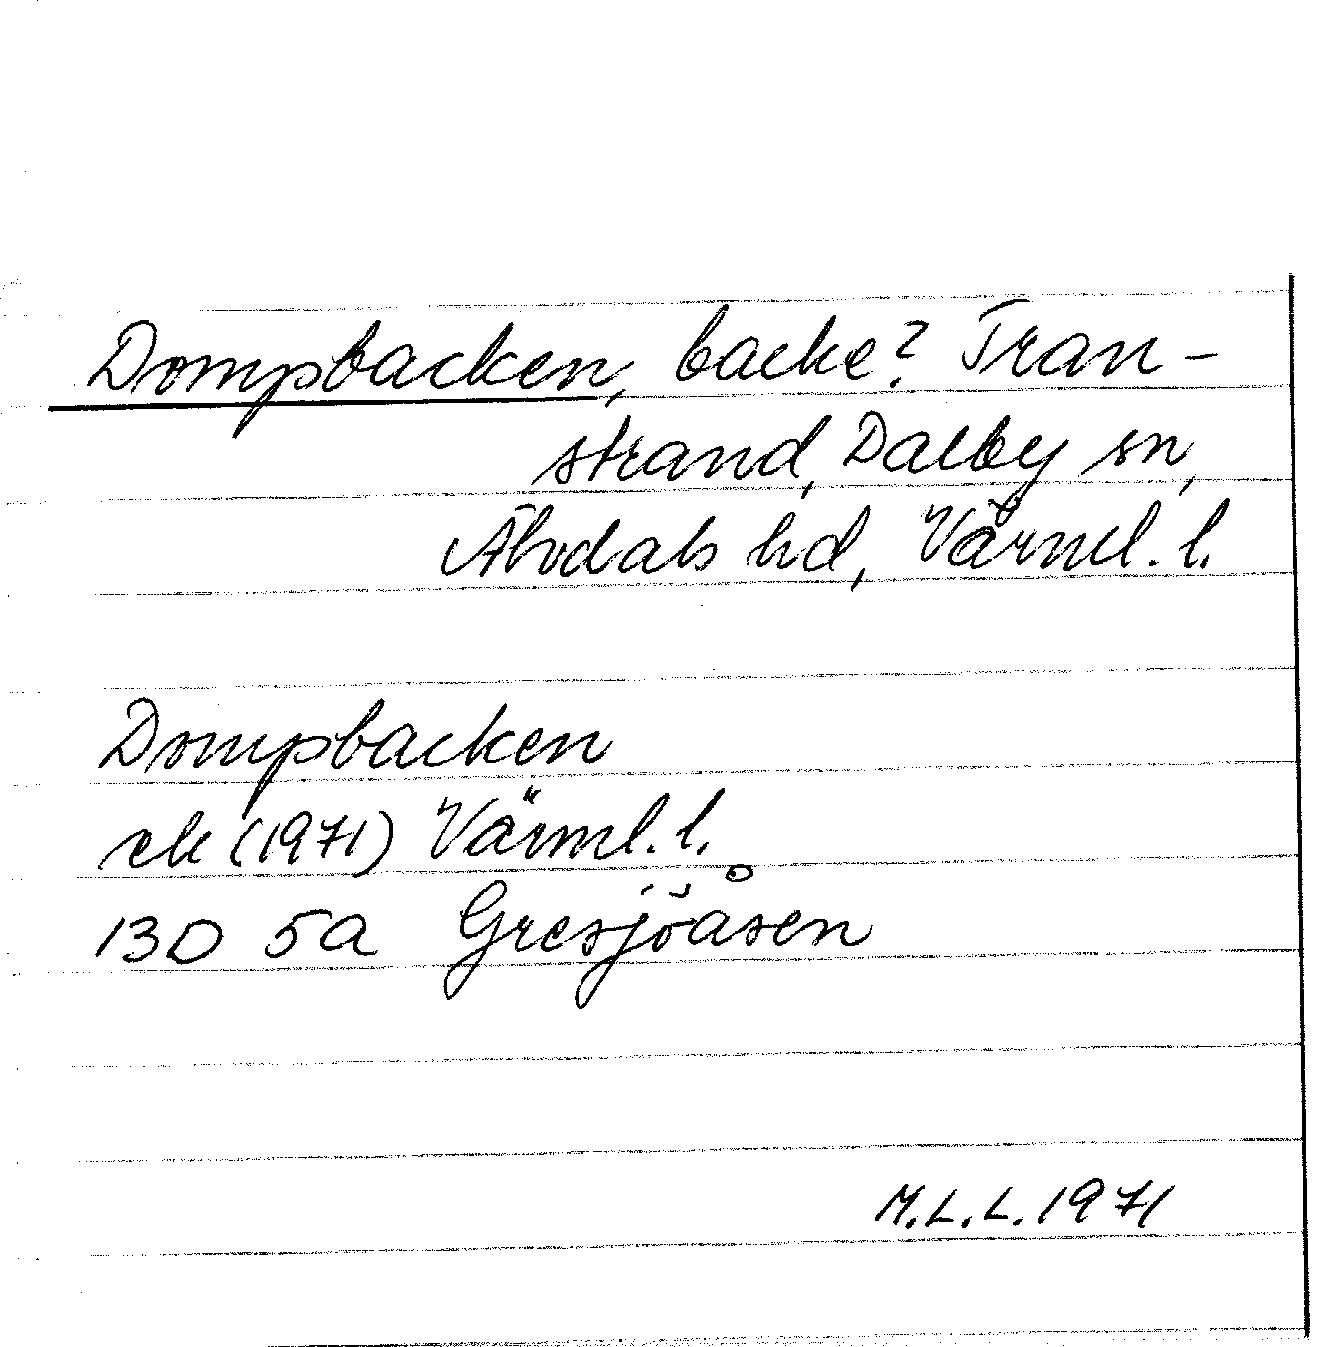 Dompbacken, backe? Tran-
strand, Dalby sn,
Älvdals hd, Värml. l.
Dompbacken
ek (1971) Värml. l.
13D 5a Gresjöåsen
M.L.L. 1971